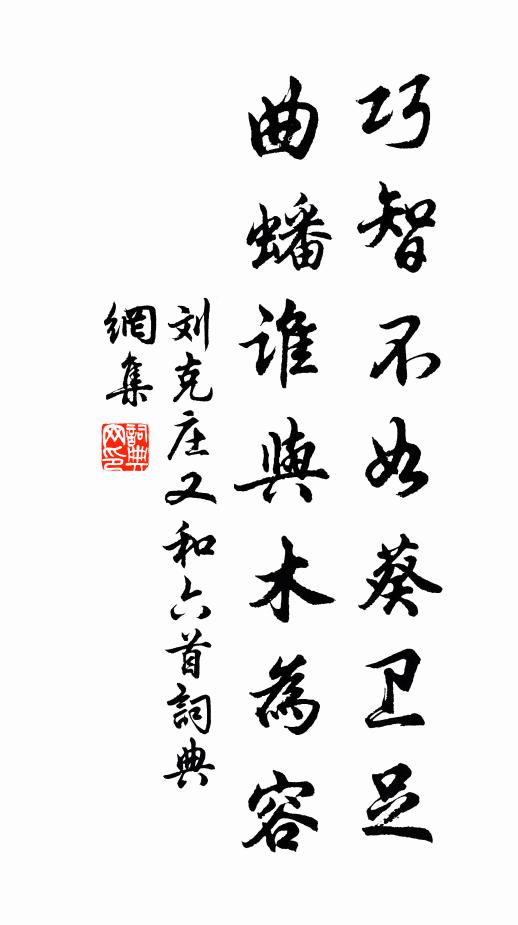 巧智不如葵卫足
曲蟠谁與木為容
刘克庄又和六首詞典
網集
詞典網印